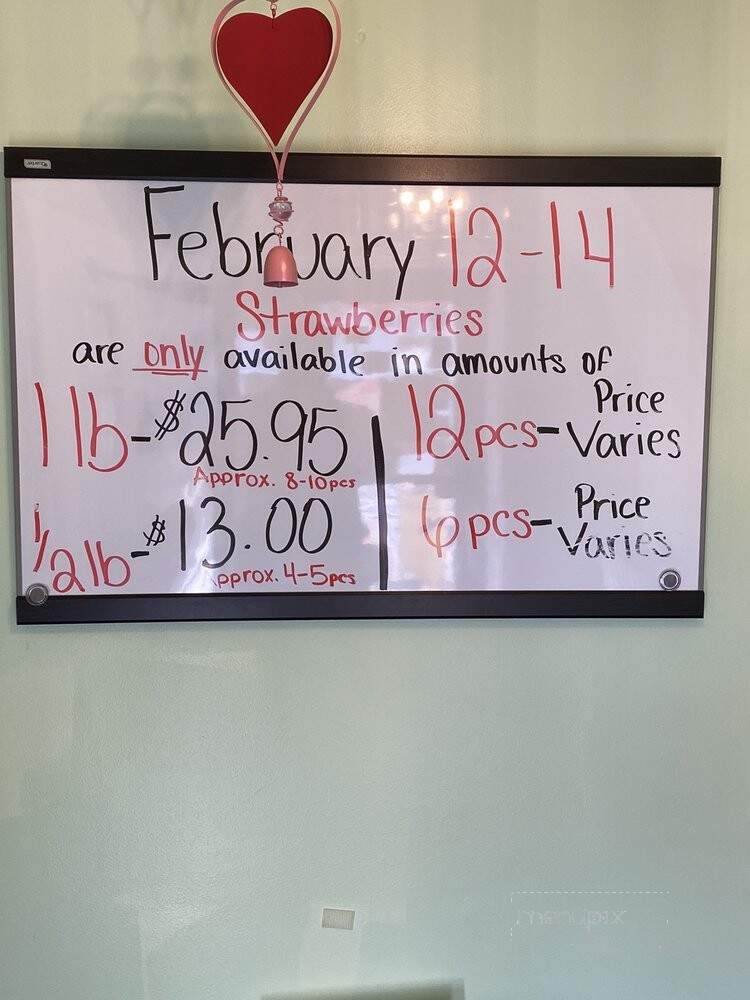 February 12-14
Strawberries
are only available in amounts of
1 lb - $25.95
Approx. 8-10pcs
1/2 lb - $13.00
pprox. 4-5pcs
12pcs - Price
Varies
6pcs - Price
Varies
menupix